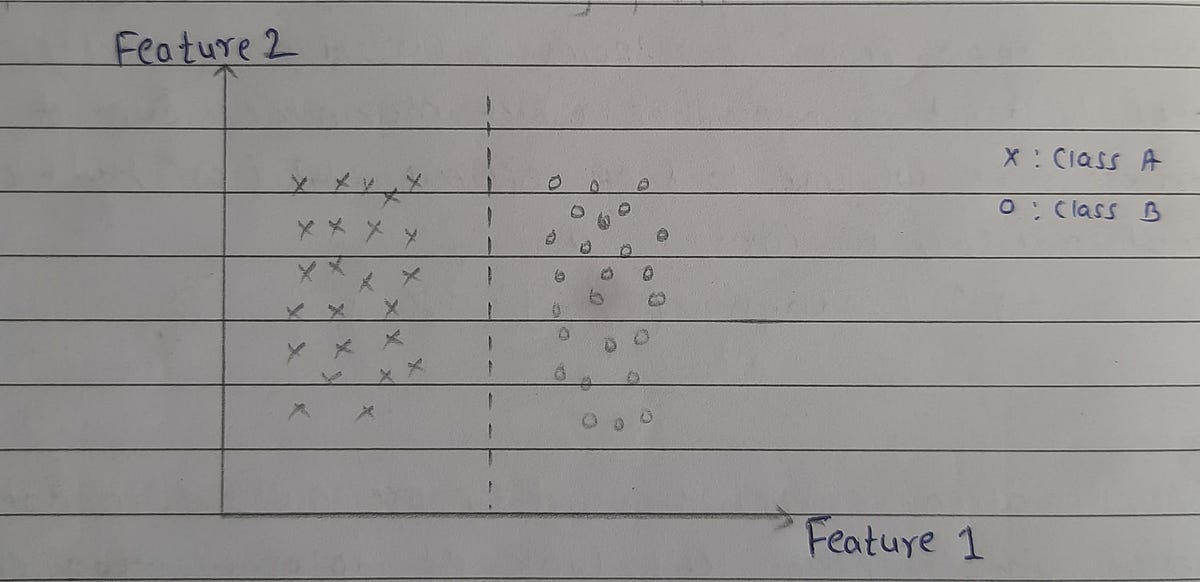 Feature 2
x : Class A
o : Class B
Feature 1